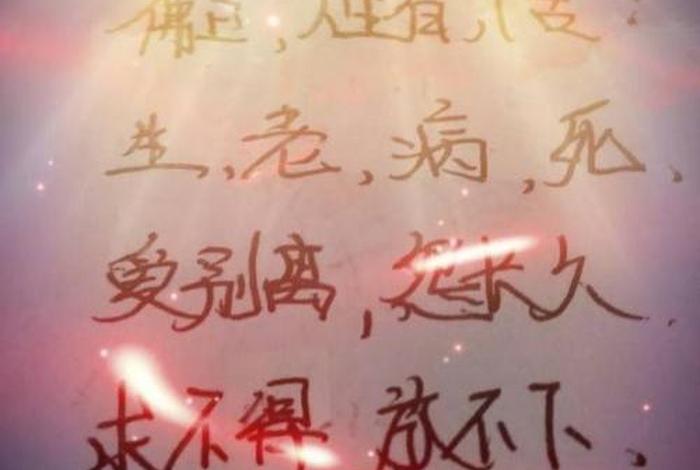 佛曰,人生有八苦:
生,老,病,死、
爱别离,怨长久、
求不得,放不下、